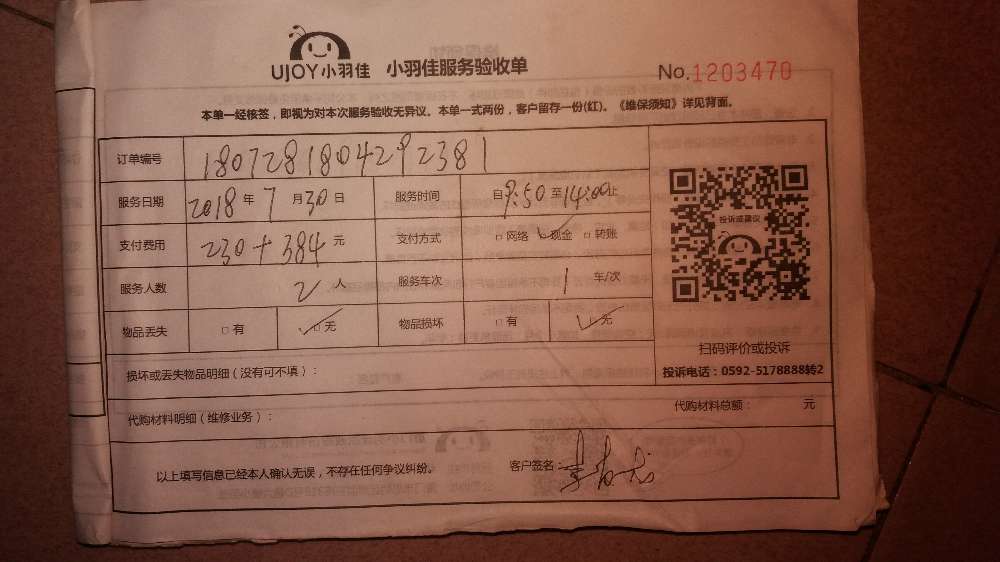 UJOY小羽佳 小羽佳服务验收单 No.1203470
本单一经核签，即视为对本次服务验收无异议。本单一式两份，客户留存一份(红)。《维保须知》详见背面。
订单编号 1807281804292381
服务日期 2018年7月30日 服务时间 自9:50至14:00止
支付费用 230+384元 支付方式 □网络 ☑现金 □转账
投诉或建议
服务人数 2人 服务车次 1车/次
物品丢失 □有 ☑无 物品损坏 □有 ☑无
扫码评价或投诉
损坏或丢失物品明细（没有可不填）：
投诉电话：0592-5178888转2
代购材料明细（维修业务）： 代购材料总额： 元
以上填写信息已经本人确认无误，不存在任何争议纠纷。 客户签名：